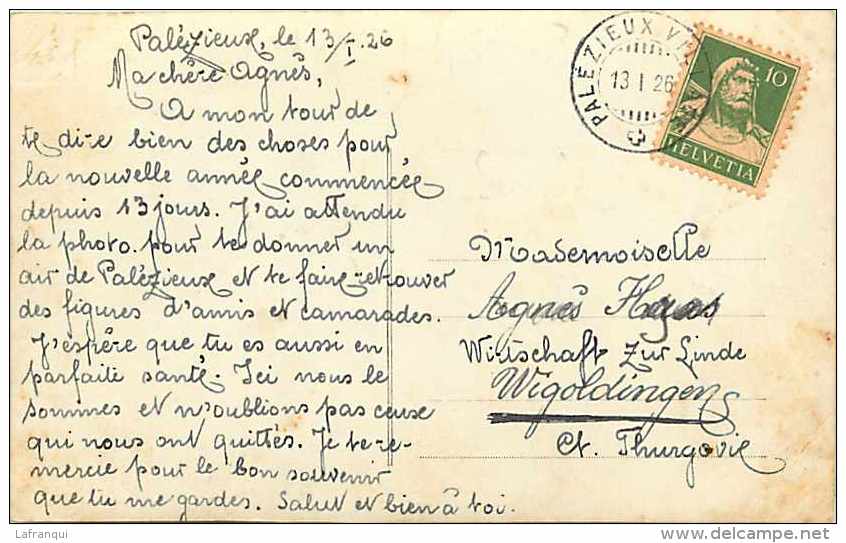 Palézieux, le 13/I.26
Ma chère Agnès,
A mon tour de
te dire bien des choses pour
la nouvelle année commencée
depuis 13 jours. J'ai attendu
la photo. pour te donner un
air de Palézieux et te faire retrouver
des figures d'amis et camarades.
J'espère que tu es aussi en
parfaite santé. Ici nous le
sommes et n'oublions pas ceux
qui nous ont quittés. Je te re-
mercie pour le bon souvenir
que tu me gardes. Salut et bien à toi.
PALÉZIEUX
13 I 26
10
HELVETIA
Mademoiselle
Agnès
Wirtschaft Zur Linde
Wigoldingen
Ct. Thurgovie
Lafranqui
delcampe.net